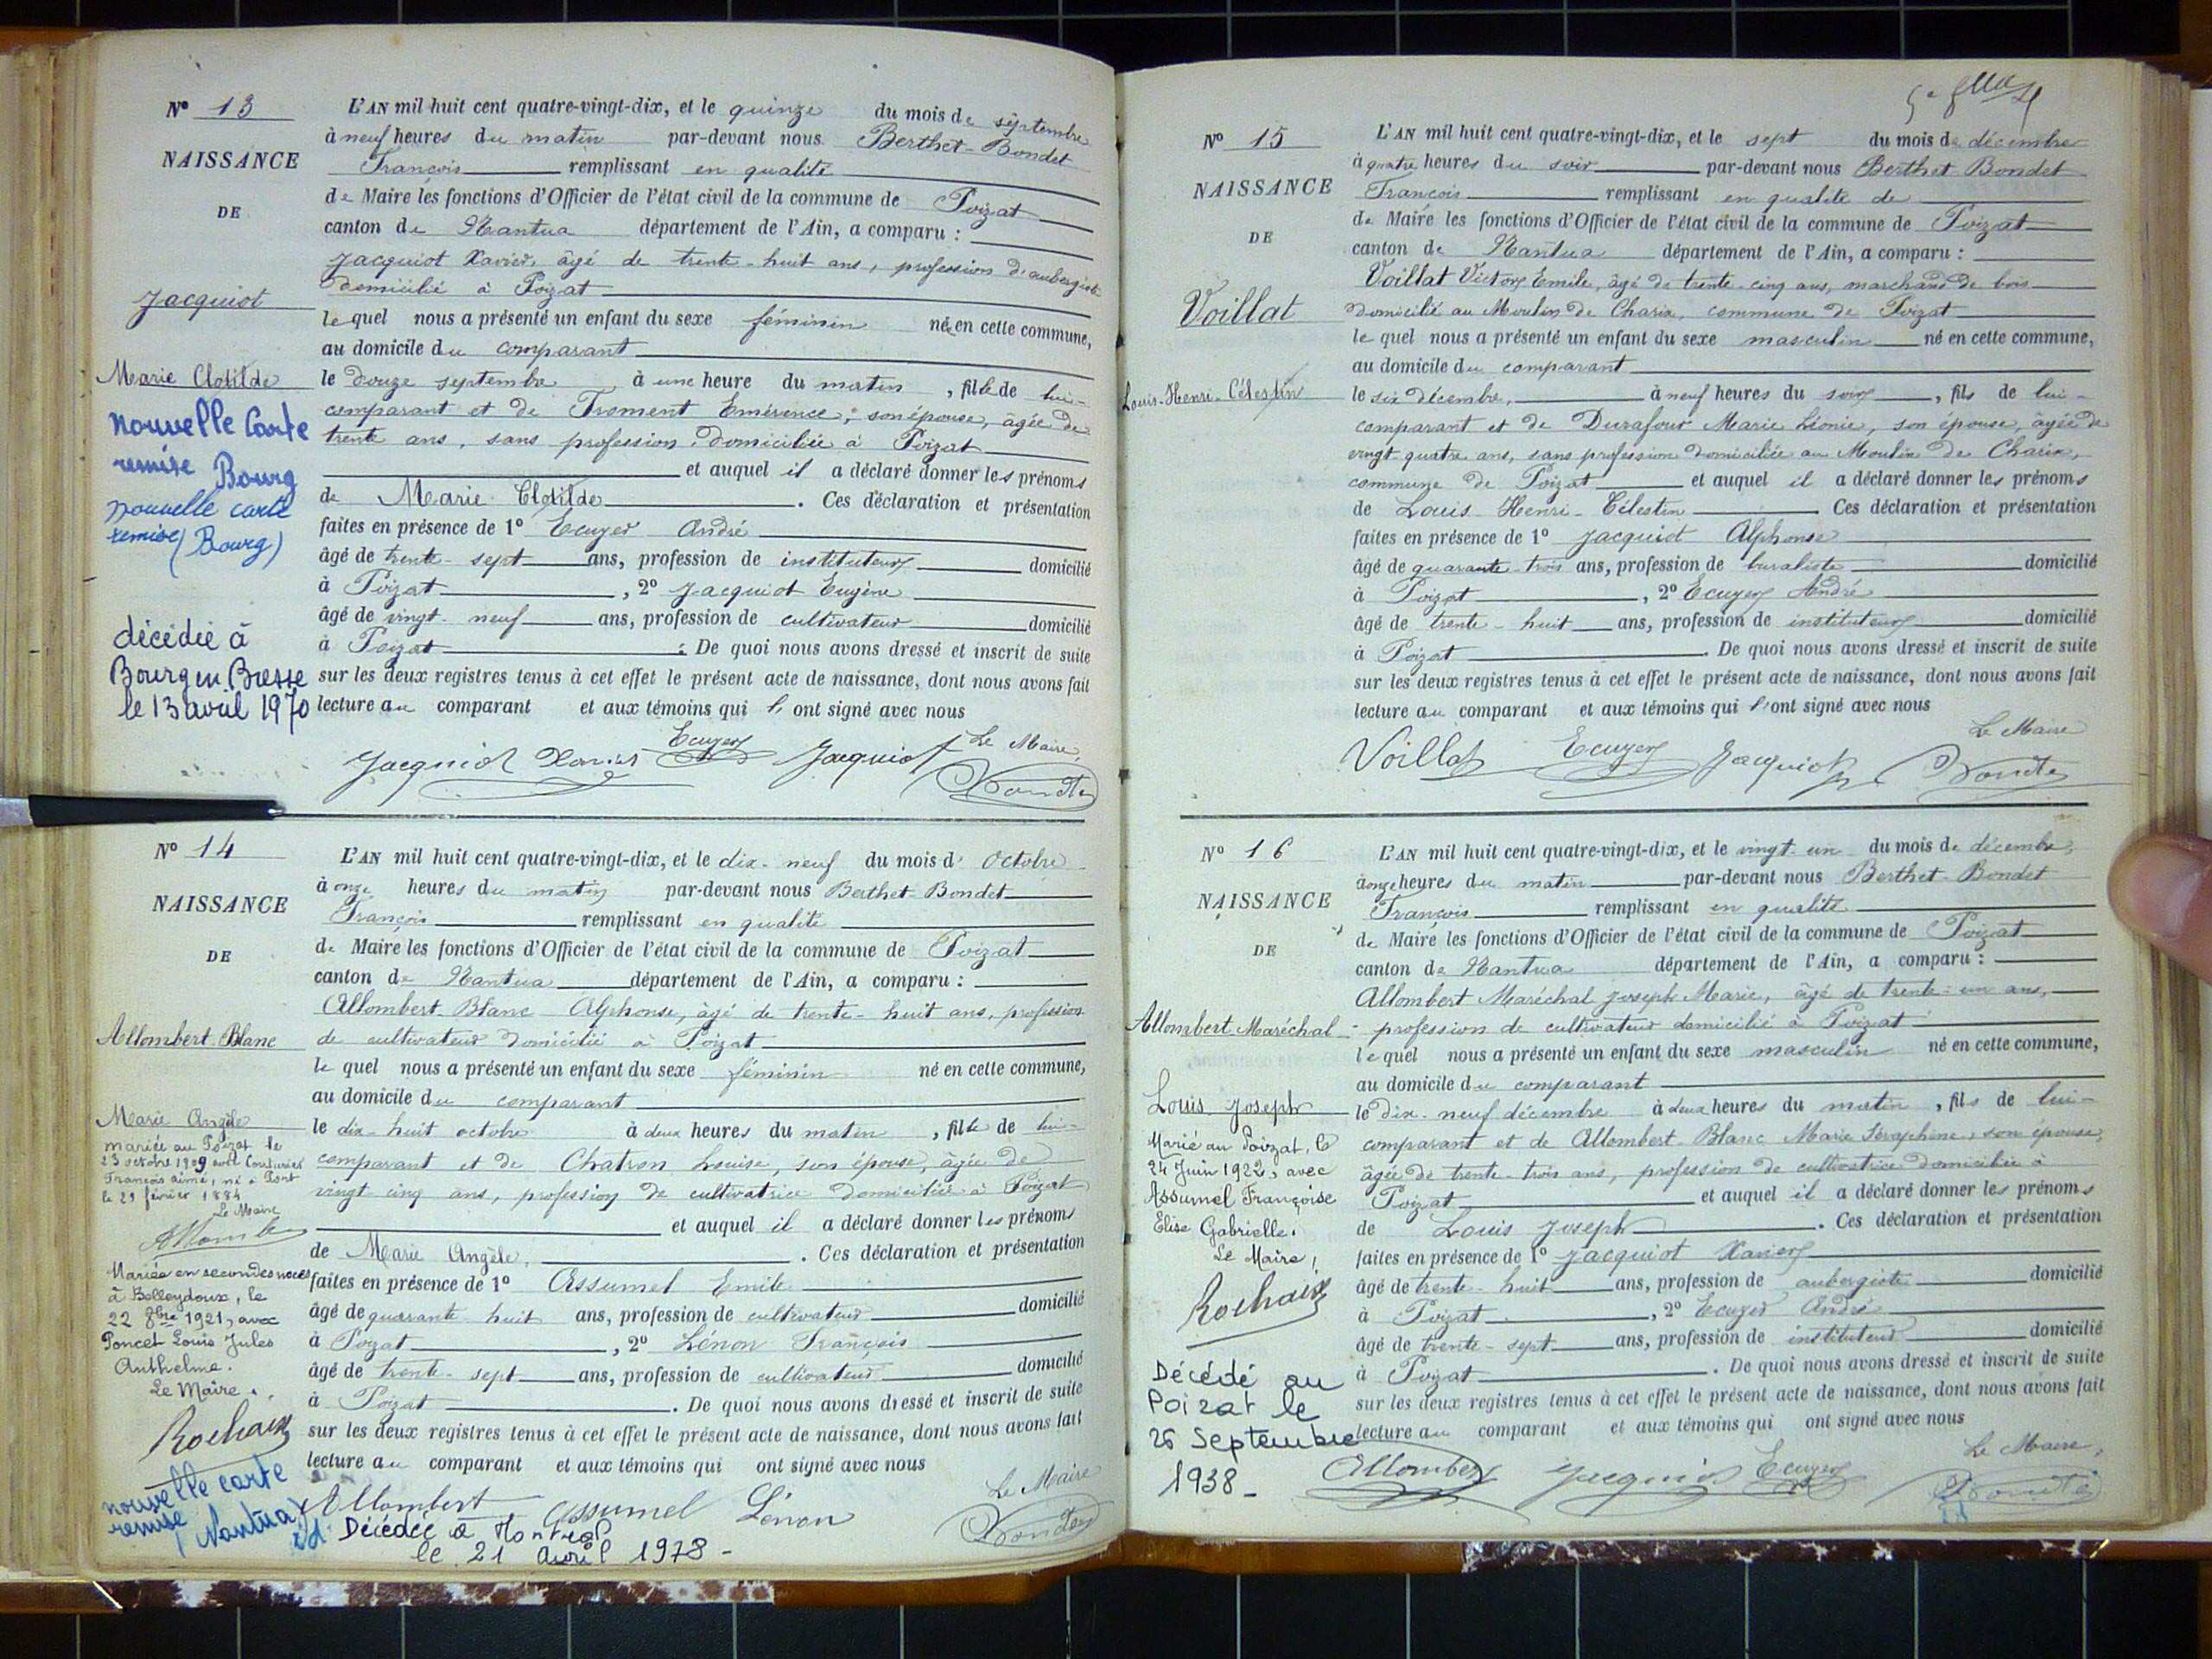 N° 13
NAISSANCE
DE
Jacquiot
Marie Clotilde
nouvelle Carte
remise Bourg
nouvelle carte
remise (Bourg)
décédée à
Bourg en Bresse
le 13 avril 1970
L'AN mil huit cent quatre-vingt-dix, et le quinze du mois de septembre
à neuf heures du matin par-devant nous Berthet-Bondet
François remplissant en qualité
de Maire les fonctions d'Officier de l'état civil de la commune de Poizat
canton de Nantua département de l'Ain, a comparu :
Jacquiot Xavier, âgé de trente-huit ans, profession d'aubergiste
domicilié à Poizat
lequel nous a présenté un enfant du sexe féminin née en cette commune,
au domicile du comparant
le douze septembre à une heure du matin, fille de lui-
comparant et de Froment Emérence, son épouse, âgée de
trente ans, sans profession, domiciliée à Poizat
et auquel il a déclaré donner les prénoms
de Marie Clotilde. Ces déclaration et présentation
faites en présence de 1° Ecuyer André
âgé de trente-sept ans, profession de instituteur domicilié
à Poizat, 2° Jacquiot Eugène
âgé de vingt-neuf ans, profession de cultivateur domicilié
à Poizat. De quoi nous avons dressé et inscrit de suite
sur les deux registres tenus à cet effet le présent acte de naissance, dont nous avons fait
lecture au comparant et aux témoins qui l'ont signé avec nous
Jacquiot Xavier Ecuyer Jacquiot Le Maire,
Bondet
N° 14
NAISSANCE
DE
Allombert-Blanc
Marie Angèle
mariée au Poizat le
23 octobre 1909 avec Couturier
François Aimé, né à Port
le 29 février 1884
Le Maire
Allombe
Mariée en secondes noces
à Belleydoux, le
22 8bre 1921, avec
Poncet Louis Jules
Anthelme.
Le Maire.
Rochaix
nouvelle carte
remise
(Nantua)
id
L'AN mil huit cent quatre-vingt-dix, et le dix-neuf du mois d'Octobre
à onze heures du matin par-devant nous Berthet-Bondet
François remplissant en qualité
de Maire les fonctions d'Officier de l'état civil de la commune de Poizat
canton de Nantua département de l'Ain, a comparu :
Allombert-Blanc Alphonse, âgé de trente-huit ans, profession
de cultivateur domicilié à Poizat
lequel nous a présenté un enfant du sexe féminin né en cette commune,
au domicile du comparant
le dix-huit octobre à deux heures du matin, fille de lui-
comparant et de Chatron Louise, son épouse, âgée de
vingt-cinq ans, profession de cultivatrice domiciliée à Poizat
et auquel il a déclaré donner les prénoms
de Marie Angèle. Ces déclaration et présentation
faites en présence de 1° Assumel Emile
âgé de quarante huit ans, profession de cultivateur domicilié
à Poizat, 2° Lénon François
âgé de trente-sept ans, profession de cultivateur domicilié
à Poizat. De quoi nous avons dressé et inscrit de suite
sur les deux registres tenus à cet effet le présent acte de naissance, dont nous avons fait
lecture au comparant et aux témoins qui ont signé avec nous
Allombert Assumel Lénon Le Maire
Bondet
Décédée à Montréal
le 21 avril 1978 -
N° 15
NAISSANCE
DE
Voillat
Louis-Henri-Célestin
L'AN mil huit cent quatre-vingt-dix, et le sept du mois de décembre
à quatre heures du soir par-devant nous Berthet Bondet
François remplissant en qualité de
de Maire les fonctions d'Officier de l'état civil de la commune de Poizat
canton de Nantua département de l'Ain, a comparu :
Voillat Victor Emile, âgé de trente-cinq ans, marchand de bois
domicilié au Moulin de Charix, commune de Poizat
lequel nous a présenté un enfant du sexe masculin né en cette commune,
au domicile du comparant
le six décembre, à neuf heures du soir, fils de lui-
comparant et de Durafour Marie Léonie, son épouse, âgée de
vingt-quatre ans, sans profession domiciliée au Moulin de Charix,
commune de Poizat et auquel il a déclaré donner les prénoms
de Louis-Henri-Célestin Ces déclaration et présentation
faites en présence de 1° Jacquiot Alphonse
âgé de quarante-trois ans, profession de buraliste domicilié
à Poizat, 2° Ecuyer André
âgé de trente-huit ans, profession de instituteur domicilié
à Poizat. De quoi nous avons dressé et inscrit de suite
sur les deux registres tenus à cet effet le présent acte de naissance, dont nous avons fait
lecture au comparant et aux témoins qui l'ont signé avec nous
Le Maire
Voillat Ecuyer Jacquiot Bondet
N° 16
NAISSANCE
DE
Allombert Maréchal
Louis Joseph
Marié au Poizat, le
24 Juin 1922, avec
Assumel Françoise
Elise Gabrielle.
Le Maire,
Rochaix
Décédé au
Poizat le
26 Septembre
1938 -
L'AN mil huit cent quatre-vingt-dix, et le vingt-un du mois de décembre,
à onze heures du matin par-devant nous Berthet-Bondet
François remplissant en qualité
de Maire les fonctions d'Officier de l'état civil de la commune de Poizat
canton de Nantua département de l'Ain, a comparu :
Allombert Maréchal Joseph Marie, âgé de trente-un ans,
profession de cultivateur domicilié à Poizat
lequel nous a présenté un enfant du sexe masculin né en cette commune,
au domicile du comparant
le dix-neuf décembre à deux heures du matin, fils de lui-
comparant et de Allombert-Blanc Marie Séraphine, son épouse,
âgée de trente-trois ans, profession de cultivatrice domiciliée à
Poizat et auquel il a déclaré donner les prénoms
de Louis Joseph. Ces déclaration et présentation
faites en présence de 1° Jacquiot Xavier
âgé de trente-huit ans, profession de aubergiste domicilié
à Poizat, 2° Ecuyer André
âgé de trente-sept ans, profession de instituteur domicilié
à Poizat. De quoi nous avons dressé et inscrit de suite
sur les deux registres tenus à cet effet le présent acte de naissance, dont nous avons fait
lecture au comparant et aux témoins qui ont signé avec nous
Le Maire,
Allombert Jacquiot Ecuyer Bondet